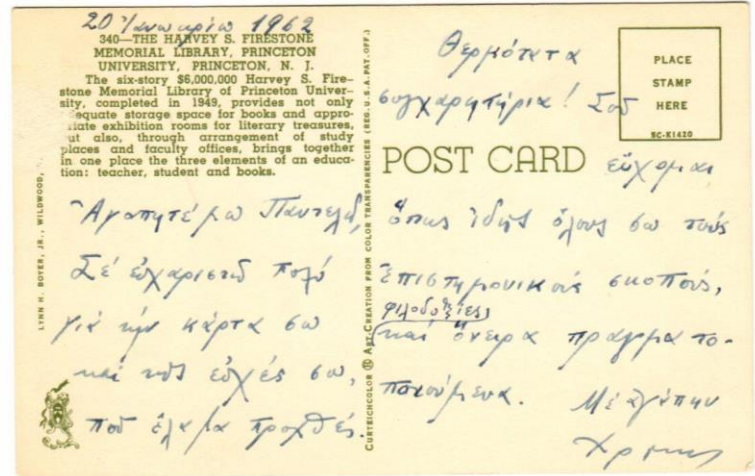 20 Ἰανουαρίου 1962
340—THE HARVEY S. FIRESTONE
MEMORIAL LIBRARY, PRINCETON
UNIVERSITY, PRINCETON, N. J.
The six-story $6,000,000 Harvey S. Fire-
stone Memorial Library of Princeton Univer-
sity, completed in 1949, provides not only
equate storage space for books and appro-
iate exhibition rooms for literary treasures,
ut also, through arrangement of study
places and faculty offices, brings together
in one place the three elements of an educa-
tion: teacher, student and books.
Ἀγαπητέ μου Παντελῆ,
Σέ εὐχαριστῶ πολύ
γιά τήν κάρτα σου
καί τίς εὐχές σου,
πού ἔλαβα προχθές.
LYNN H. BOYER, JR., WILDWOOD,
CURTEICHCOLOR ® ART-CREATION FROM COLOR TRANSPARENCIES (REG. U.S.A. PAT. OFF.)
Θερμότατα
συγχαρητήρια! Σοῦ
POST CARD
εὔχομαι
ὅπως ἰδῇς ὅλους σου τούς
ἐπιστημονικούς σκοπούς,
φιλοδοξίες
καί ὄνειρα πραγματο-
ποιούμενα. Μέ ἀγάπην
PLACE
STAMP
HERE
SC-K1420